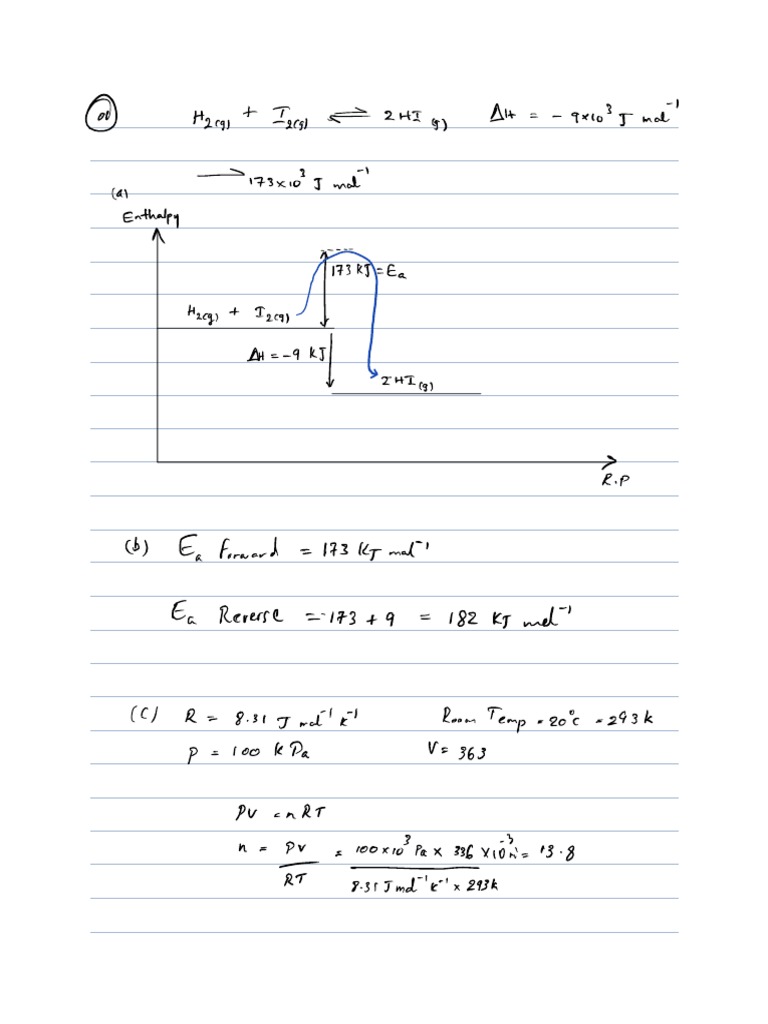 H2(g) + I2(g) ⇌ 2HI (g) ΔH = - 9×10³ J mol⁻¹
→ 173×10³ J mol⁻¹
(a)
Enthalpy
173 KJ = Ea
H2(g) + I2(g)
ΔH = -9 KJ
2HI(g)
R.P
(b) Ea Forward = 173 KJ mol⁻¹
Ea Reverse = 173 + 9 = 182 KJ mol⁻¹
(C) R = 8.31 J mol⁻¹ K⁻¹ Room Temp = 20°C = 293k
P = 100 k Pa V = 363
PV = nRT
n = PV/RT = 100×10³ Pa × 336 ×10⁻³ / 8.31 J mol⁻¹ K⁻¹ × 293k = 13.8